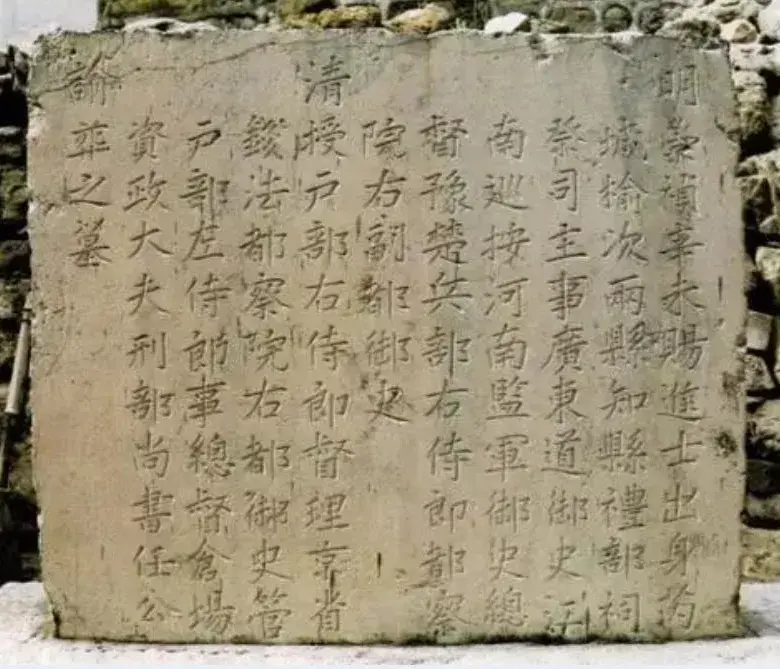 明崇禎辛未賜進士出身芮
城榆次兩縣知縣禮部祠
祭司主事廣東道御史江
南巡按河南監軍御史總
督豫楚兵部右侍郎都察
院右副都御史
清授户部右侍郎督理京省
錢法都察院右都御史管
户部左侍郎事總督倉場
資政大夫刑部尚書任公
諭葬之墓